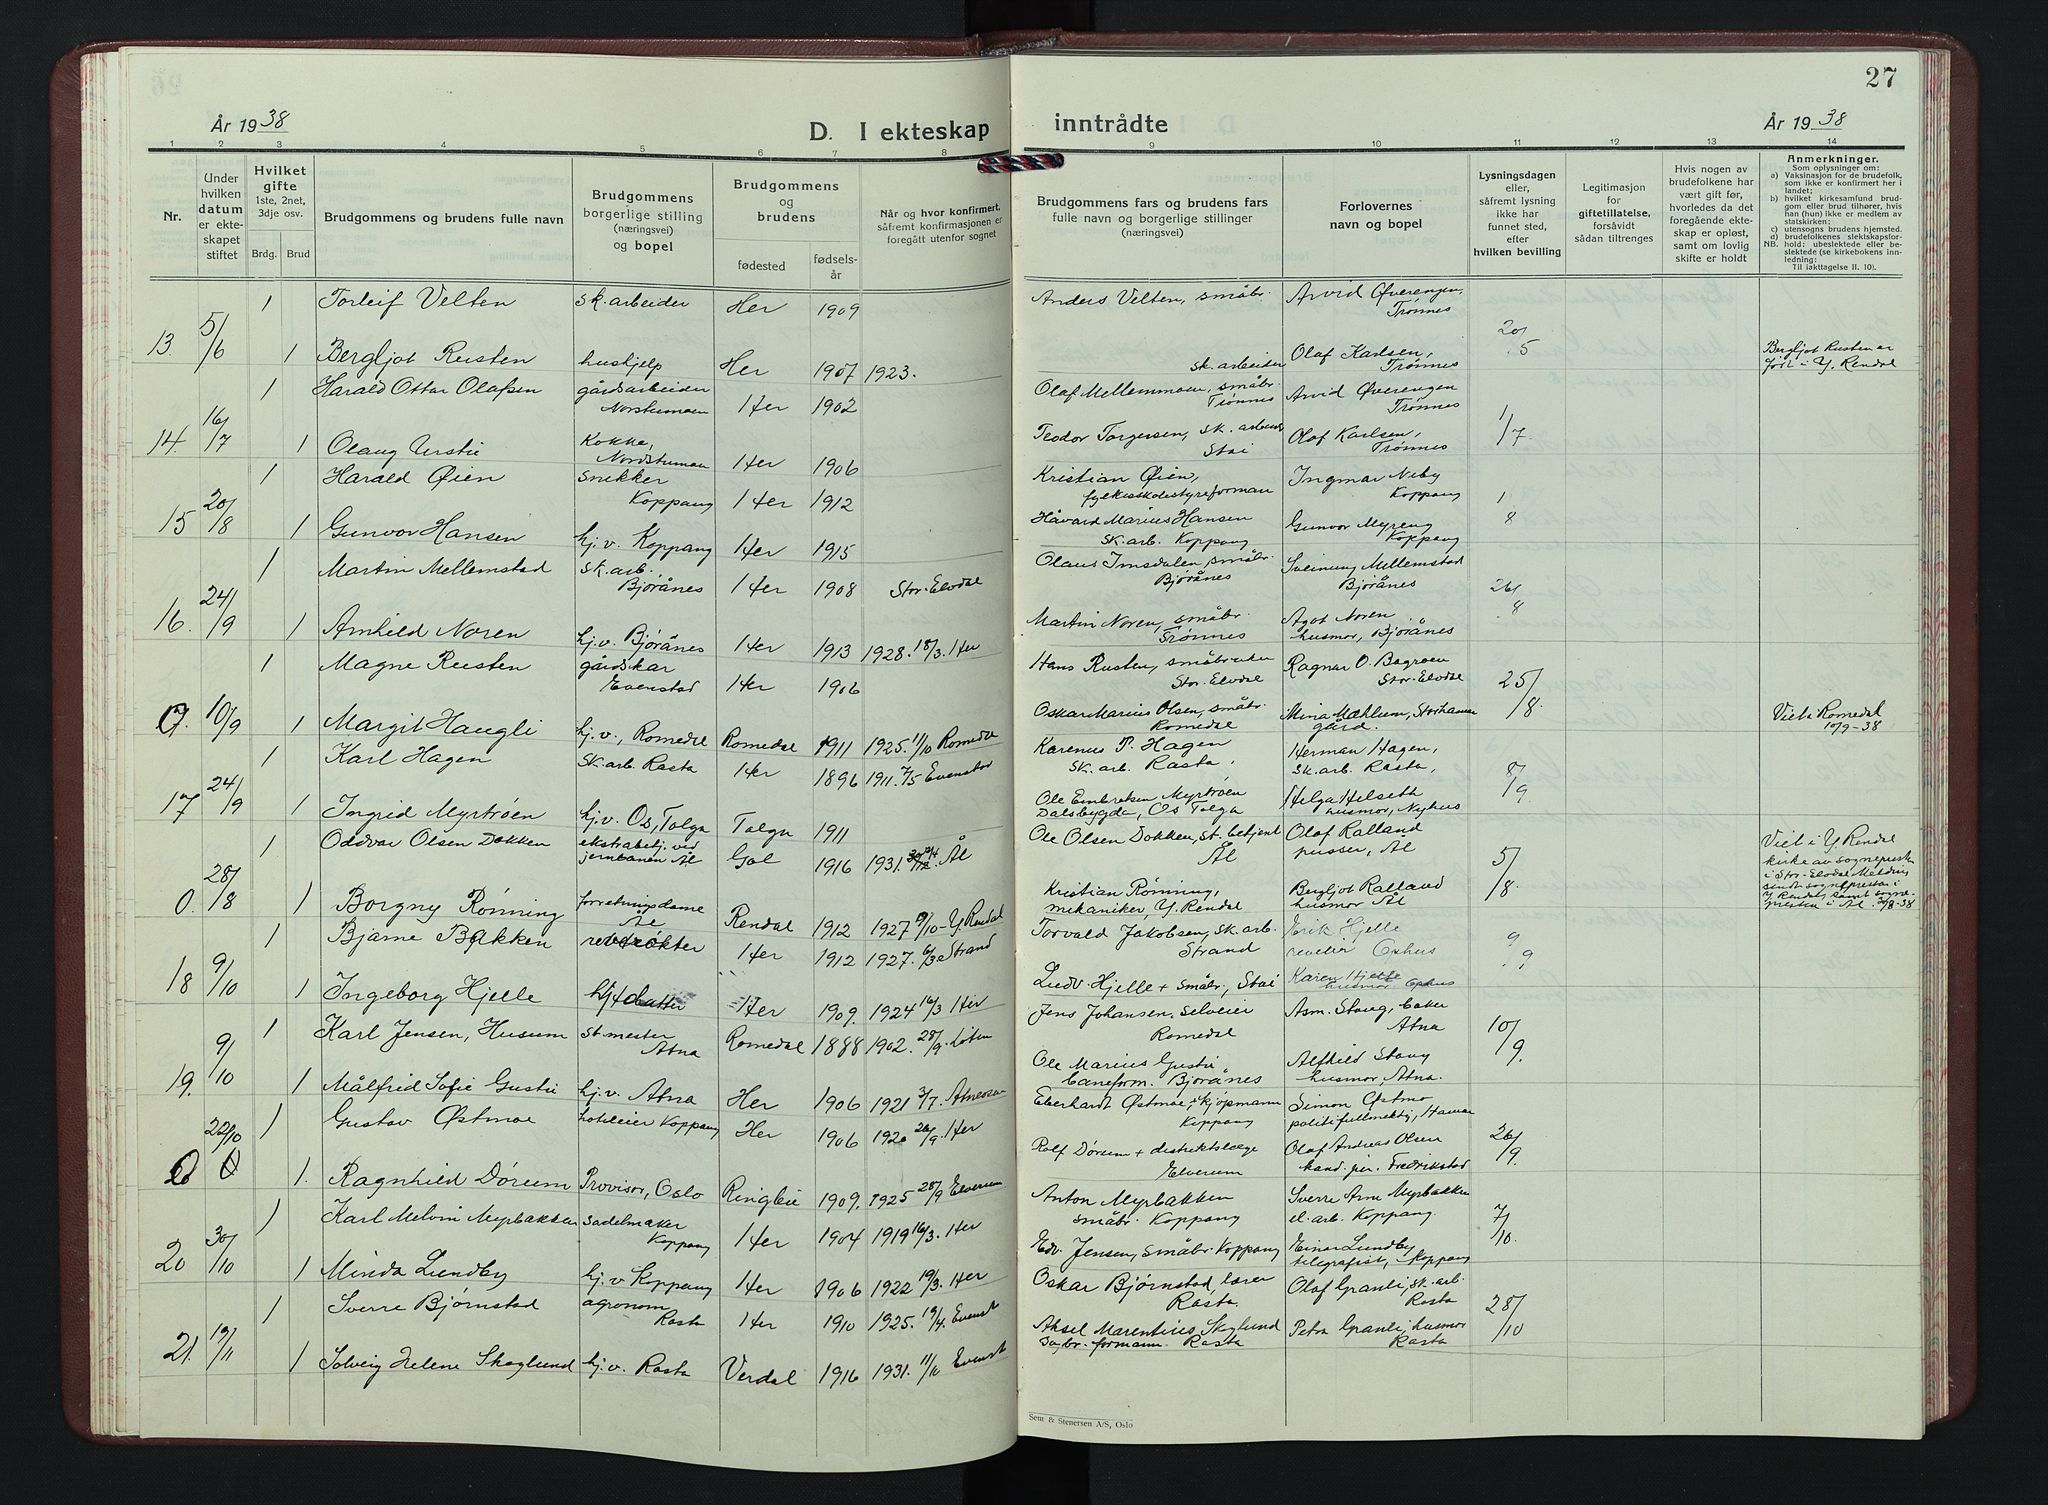 27
År 1938
D. I ekteskap
inntrådte
År 1938
1 2 3 4 5 6 7 8 9 10 11 12 13 14
Nr.
Under
hvilken
datum
er ekte-
skapet
stiftet
Hvilket
gifte
1ste, 2net,
3dje osv.
Brdg. Brud
Brudgommens og brudens fulle navn
Brudgommens
borgerlige stilling
(næringsvei)
og bopel
Brudgommens
og
brudens
fødested
fødsels-
år
Når og hvor konfirmert.
såfremt konfirmasjonen er
foregått utenfor sognet
Brudgommens fars og brudens fars
fulle navn og borgerlige stillinger
(næringsvei)
Forlovernes
navn og bopel
Lysningsdagen
eller,
såfremt lysning
ikke har
funnet sted,
efter
hvilken bevilling
Legitimasjon
for
giftetillatelse,
forsåvidt
sådan tiltrenges
Hvis nogen av
brudefolkene har
vært gift før,
hvorledes da det
foregående ekte-
skap er opløst,
samt om lovlig
skifte er holdt
Anmerkninger.
Som oplysninger om:
a) Vaksinasjon for de brudefolk,
som ikke er konfirmert her i
landet;
b) hvilket kirkesamfund brud-
gom eller brud tilhører, hvis
han (hun) ikke er medlem av
statskirken;
c) utensogns brudens hjemsted.
d) brudefolkenes slektskapsfor-
NB. hold: ubeslektede eller be-
slektede (se kirkebokens inn-
ledning:
Til iakttagelse II. 10).
1 Torleif Velten sk.arbeider Her 1909 Anders Velten, småbr. Arvid Øverengen, Trønnes
13. 5/6 1 Bergljot Rusten hushjelp Her 1907 1923. sk.arbeider Olaf Karlsen, Trønnes 20/5 Bergljot Rusten er
født i Y. Rendal
1 Harald Ottar Olafsen gårdsarbeider Her 1902 Olaf Mellemmoen, småbr. Trønnes Arvid Øverengen Trønnes
14. 16/7 1 Olaug Urstie Kokke, Her 1906 Teodor Torgersen, sk. arbeid. Stai Olaf Karlsen, Trønnes 1/7.
1 Harald Øien snekker Koppang Her 1912 Kristian Øien, Ingmar Neby Koppang
15 20/8 1 Gunvor Hansen hj.v. Koppang Her 1915 Håvard Marius Hansen sk.arb. Koppang Gunvor Myreng Koppang 1/8
1 Martin Mellemstad sk.arb. Bjørånes Her 1908 Stor-Elvdal Olaus Imsdalen, småbr. Bjørånes Sveinung Mellemstad Bjørånes
16. 24/9 1 Arnhild Noren hj.v. Bjørånes Her 1913 1928. 18/3. Her Martin Noren, småbr. Trønnes Agot Noren husmor, Bjørånes 26/8
1 Magne Rusten gårdskar Evenstad Her 1906 Hans Rusten, småbruker Stor-Elvdal Ragnar O. Bagroen Stor-Elvdal
10/9 1 Margit Haugli hj.v., Romedal Romedal 1911 1925. 11/10 Romedal Oskar Marius Olsen, småbr. Romedal Mina Mæhlum, Storhamar gård. 25/8. Viet i Romedal
10/9-38
1 Karl Hagen sk.arb. Rasta Her 1896 1911. 7/5 Evenstad Karenus P. Hagen sk. arb. Rasta, Herman Hagen, sk.arb. Rasta,
17 24/9 1 Ingrid Myrtrøen hj.v. Os, Tolga Tolga 1911 Ole Embretsen Myrtrøen Dalsbygda, Os Tolga Helga Helseth husmor, Nyhus 8/9.
1 Oddvar Olsen Dokken ekstrabetj. ved jernbanen Ål Gol 1916 1931. Ål Ole Olsen Dokken, st. betjent Ål Olaf Ralland pusser, Ål
0. 28/8 1 Borgny Rønning forretningsdame Ål Rendal 1912 1927 Y. Rendal Kristian Rønning, mekaniker, Y. Rendal Bergljot Ralland husmor Ål 5/8. Viet i Y. Rendal
kirke av sogneprest
i Stor-Elvdal Melding
sendt sogneprest i
Y. Rendal samt sogne-
prest i Ål
1 Bjarne Bakken revrøkter Her 1912 1927. Strand Torvald Jakobsen, sk. arb. Strand Erik Hjelle reveier Ophus
18 9/10 1 Ingeborg Hjelle Her 1909. 1924 16/3 Her Ludv. Hjelle + småbr., Stai Karen Hjelle husmor Ophus 9/9
1 Karl Jensen, Husum st.mester Atna Romedal 1888 1902. 28/9. Løten Jens Johansen, selveier Romedal Asm. Staug, baker Atna
19. 9/10 1 Målfrid Sofie Gustie hj.v. Atna Her 1906 1921 3/7. Ole Marius Gustie baneform. Bjørånes Alfhild Staug husmor, Atna. 10/9.
1 Gustav Østmoe hotelleier Koppang Her 1906 1920 26/9. Her Eberhardt Østmoe, kjøpmann Koppang Simon Østmo politifullmektig, Hamar
22/10 1. Ragnhild Dørum Provisor, Oslo Ringebu 1909. 1925 28/9 Elverum Rolf Dørum + distriktslæge Elverum Olaf Andreas Olsen kand. jur. Fredrikstad 26/9.
1 Karl Melvin Myrbakken sadelmaker Koppang Her 1904 1919 16/3. Her Anton Myrbakken småbr. Koppang Sverre Arne Myrbakken el. arb. Koppang.
20 30/10 1 Minda Lundby hj.v Koppang Her 1906 1922 19/3. Her Edv. Jensen, småbr. Koppang Einar Lundby telegrafist, Koppang 7/10.
1 Sverre Bjørnstad agronom Rasta Her 1910 1925. 19/4. Evenst. Oskar Bjørnstad, lærer Rasta. Olaf Granli, sk.arb. Rasta
21. 19/11 1 Solveig Helene Skoglund hj.v. Rasta Verdal 1916 1931. Evenst. Aksel Marentius Skoglund formann. Rasta Petra Granli, husmor Rasta 28/10
Sem & Stenersen A/S, Oslo